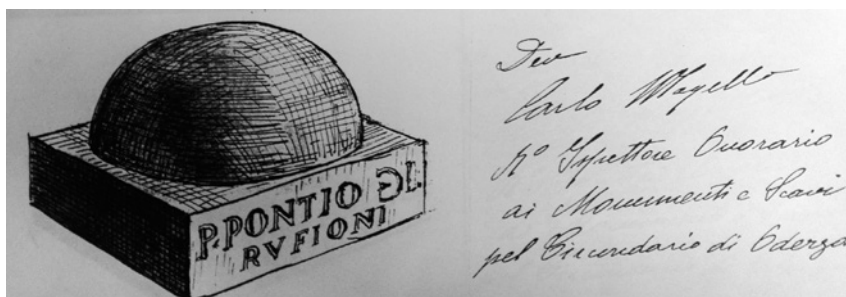 P. PONTIO Ɔ L.
RVFIONI
Dev
Carlo
R° Ispettore Onorario
ai Monumenti e Scavi
pel Circondario di Oderzo